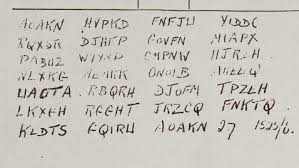 AOAKN HVPKD FNFJW YIDDC
RQXSR DJHFP GOVFN MIAPX
PABUZ WYYNP CMPNW HJRZH
NLXKG MEMKK ONOIB AKEEQ
UAOTA RBQRH DJOFM TPZEH
LKXGH RGGHT JRZCQ FNKTQ
KLDTS GQIRU AOAKN 27 1525/6.